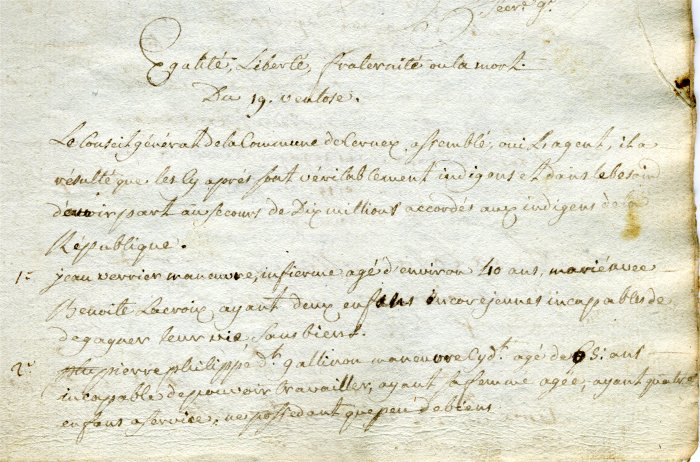 Secre. g.
Egalité, Liberté, fraternité ou la mort.
Du 19. ventose.
Le Conseil général de la Commune de Cernex, assemblé, oui L'agent, il a
résulté que les Cy aprés sont véritablement indigens et dans le besoin
d'avoir part au secours de Dix millions accordés aux indigens de la
République.
1.° jean verrier maneuvre, infierme agé d'environ 40 ans, marié avec
Benoite Lacroix ayant deux enfans incore jennes incapables de
de gagner leur vie, sans biens.
2.° pierre philippe d.t gallinon maneuvre Cyd.t agé de 65 ans
incapable de pouvoir travailler, ayant sa femme agée, ayant quatre
enfans a service, ne possedant que peu de biens